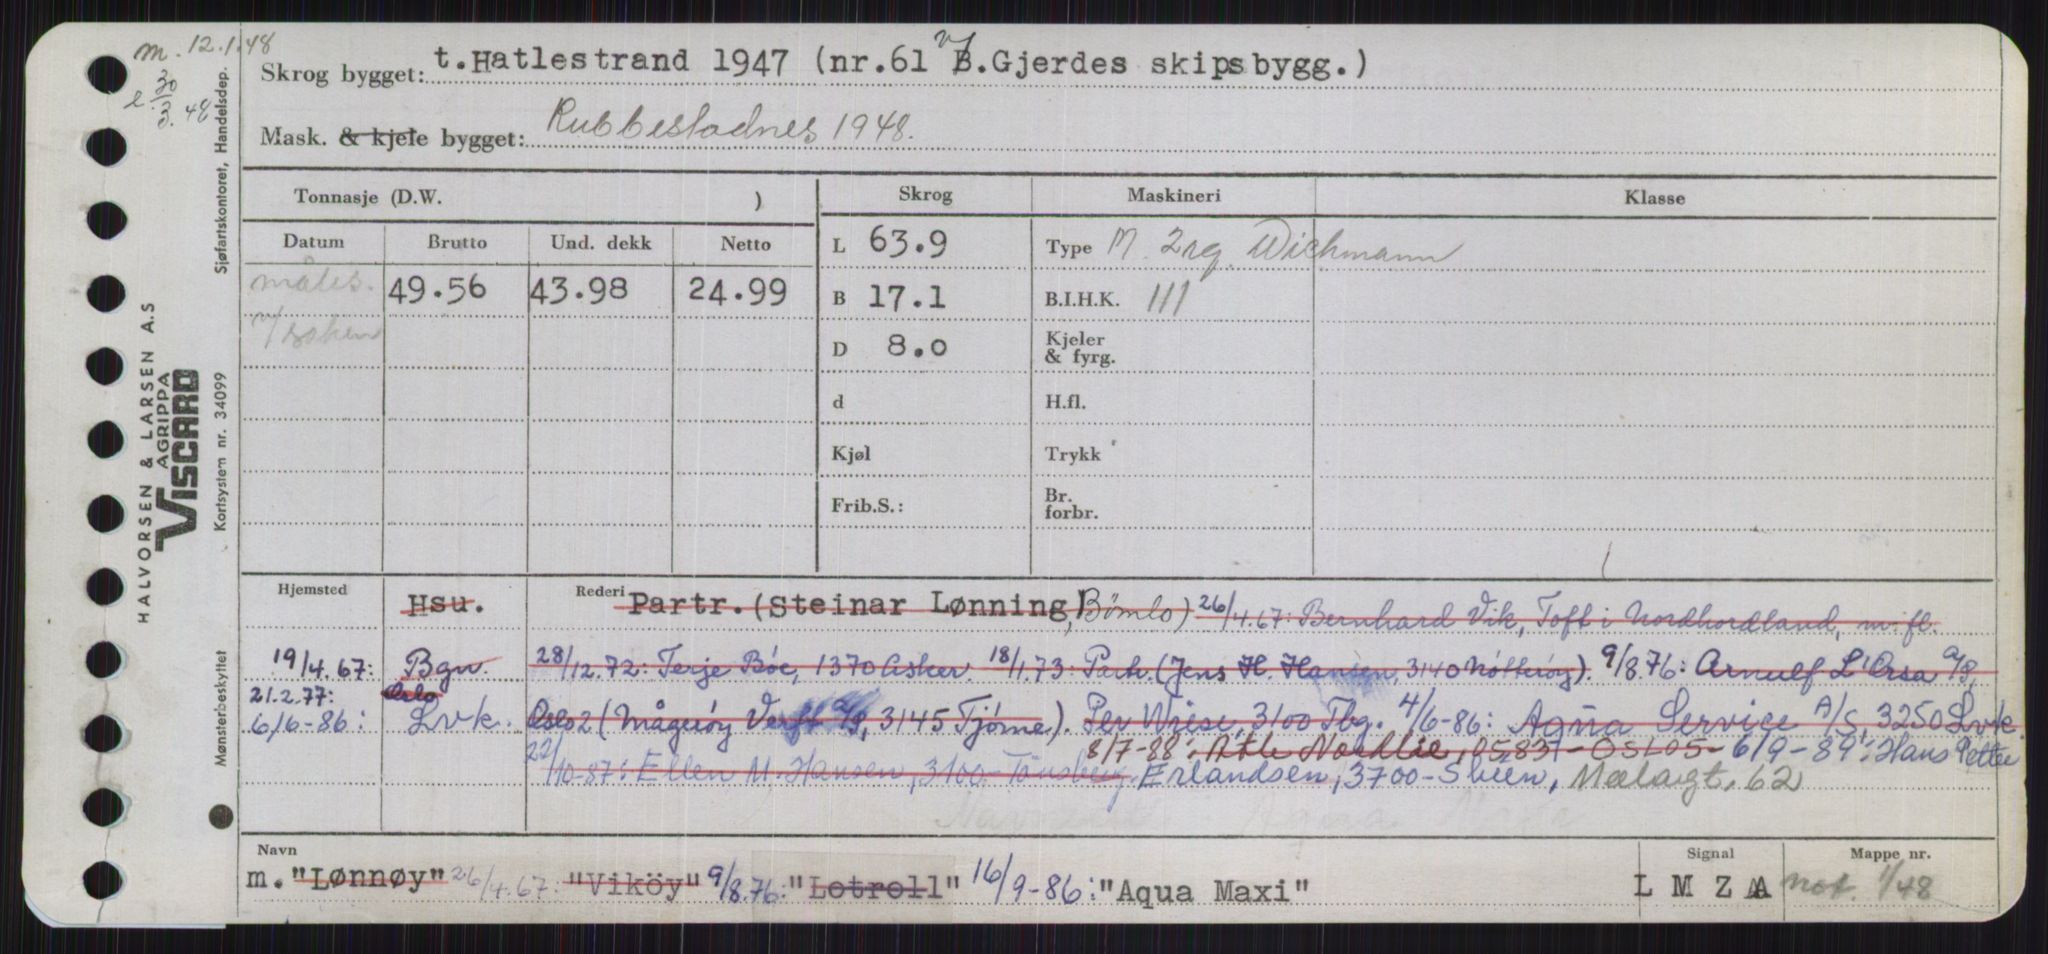 m. 12.1.48
e 30/3.48
Skrog bygget: t. Hatlestrand 1947 (nr.61 v/B.Gjerdes skipsbygg.)
Mask. & kjele bygget: Rubbestadnes 1948.
Tonnasje (D.W. )
Skrog
Maskineri
Klasse
Datum Brutto Und. dekk Netto
måles. 49.56 43.98 24.99
L 63.9
B 17.1
D 8.0
d
Kjøl
Frib.S.:
Type M. 2 reg. Wichmann
B.I.H.K. 111
Kjeler
& fyrg.
H.fl.
Trykk
Br.
forbr.
Hjemsted Hsu. Rederi Partr. (Steinar Lønning, Bömlo) 26/4.67: Bernhard Vik, Toft i Nordhordland, m. fl.
19/4.67: Bgn. 28/12.72: Terje Böe, 1370 Asker. 18/1.73: Partr. (Jens H. Hansen, 3140 Nötteröy). 9/8.76: Arnulf L'Orsa A/S,
21.2.77: Oslo
6/6-86: Lvk. Oslo 2 (Mågeröy Verft A/S, 3145 Tjöme). Per Wiese, 3100 Tbg. 4/6-86: Aqua Service A/S, 3250 Lvk.
8/7-88: Atle Nordlie, 05837-OSLO5- 6/9-89: Hans Petter
22/10-87: Ellen M. Hansen, 3100-Tönsberg. Erlandsen, 3700-Skien, Mælagt. 62
Navn m. "Lønnøy" 26/4.67: "Viköy" 9/8.76: "Lotroll" 16/9-86: "Aqua Maxi"
Signal L M Z A
Mappe nr. not. 1/48
HALVORSEN & LARSEN A.S
AGRIPPA
VISCARD
Sjøfartskontoret, Handelsdep.
Kortsystem nr. 34099
Mønsterbeskyttet